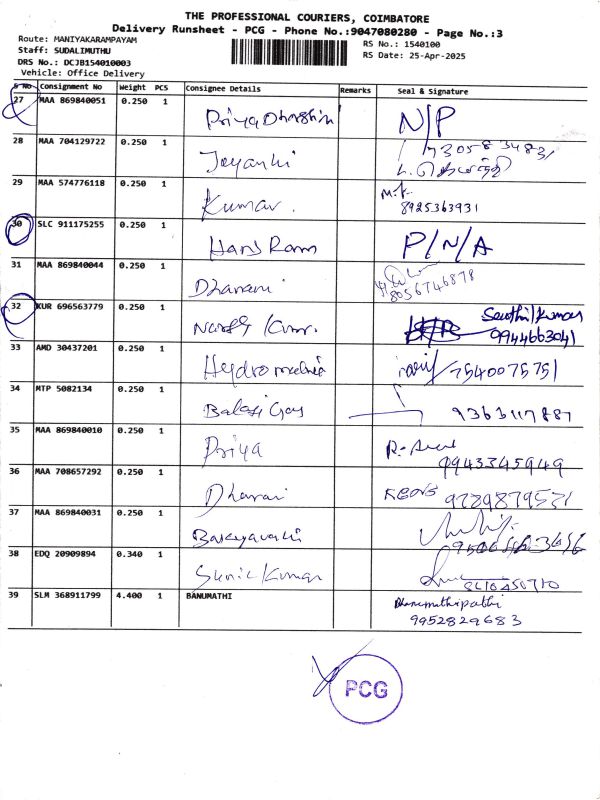 THE PROFESSIONAL COURIERS, COIMBATORE
Delivery Runsheet - PCG - Phone No.:9047080280 - Page No.:3
Route: MANIYAKARAMPAYAM
Staff: SUDALIMUTHU
DRS No.: DCJB154010003
Vehicle: Office Delivery
RS No.: 1540100
RS Date: 25-Apr-2025
S No Consignment No Weight PCS Consignee Details Remarks Seal & Signature
27 MAA 869840051 0.250 1 Priya Dharshini N/P
28 MAA 704129722 0.250 1 Jayanthi 7305834831
29 MAA 574776118 0.250 1 Kumar. M.K. 8925363931
30 SLC 911175255 0.250 1 Hari Ram P/N/A
31 MAA 869840044 0.250 1 Dharani 8056746878
32 KUR 696563779 0.250 1 Senthil Kumar 9944663041
33 AMD 30437201 0.250 1 7540075751
34 MTP 5082134 0.250 1 9363117887
35 MAA 869840010 0.250 1 Priya 9943345949
36 MAA 708657292 0.250 1 Dharani 9729879531
37 MAA 869840031 0.250 1
38 EDQ 20909894 0.340 1 Sunil Kumar
39 SLM 368911799 4.400 1 BANUMATHI Bhanumathipathi 9952829683
PCG